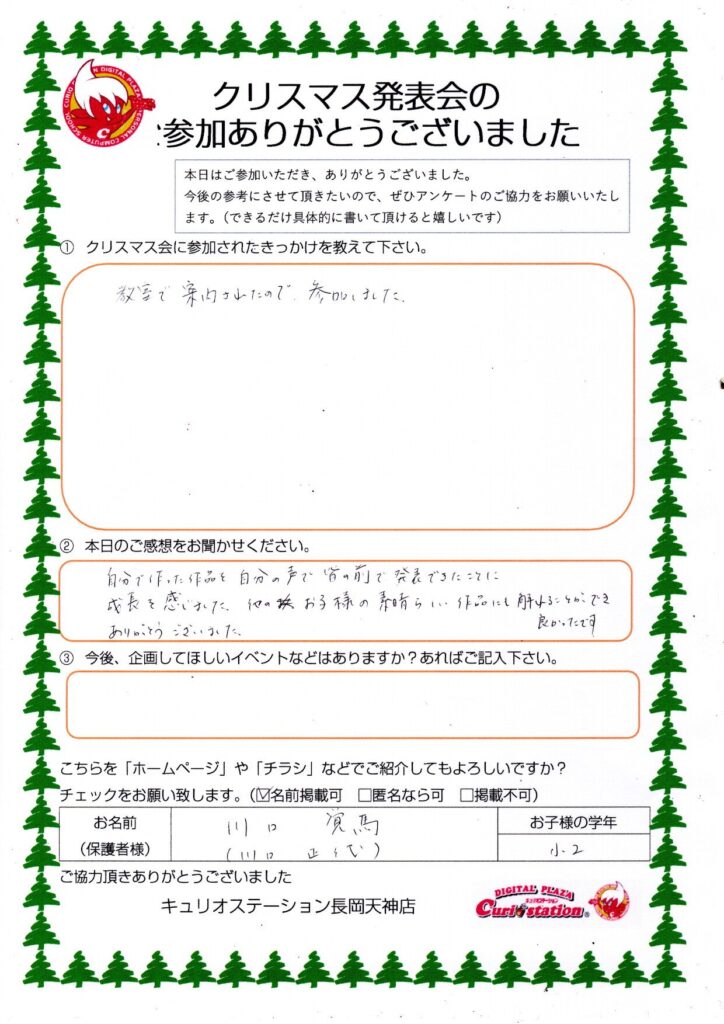 クリスマス発表会の
参加ありがとうございました
本日はご参加いただき、ありがとうございました。
今後の参考にさせて頂きたいので、ぜひアンケートのご協力をお願いいたし
ます。（できるだけ具体的に書いて頂けると嬉しいです）
① クリスマス会に参加されたきっかけを教えて下さい。
教室で案内されたので、参加しました。
② 本日のご感想をお聞かせください。
自分で作った作品を自分の声で皆の前で発表できたことに
成長を感じました。他の お子様の素晴らしい作品にも触れることができ
良かったです
ありがとうございました。
③ 今後、企画してほしいイベントなどはありますか？あればご記入下さい。
こちらを「ホームページ」や「チラシ」などでご紹介してもよろしいですか？
チェックをお願い致します。（☑名前掲載可 □匿名なら可 □掲載不可）
お名前
（保護者様）
川口 覚馬
(川口 正 )
お子様の学年
小2
ご協力頂きありがとうございました
キュリオステーション長岡天神店
DIGITAL PLAZA
キュリオステーション
Curio station